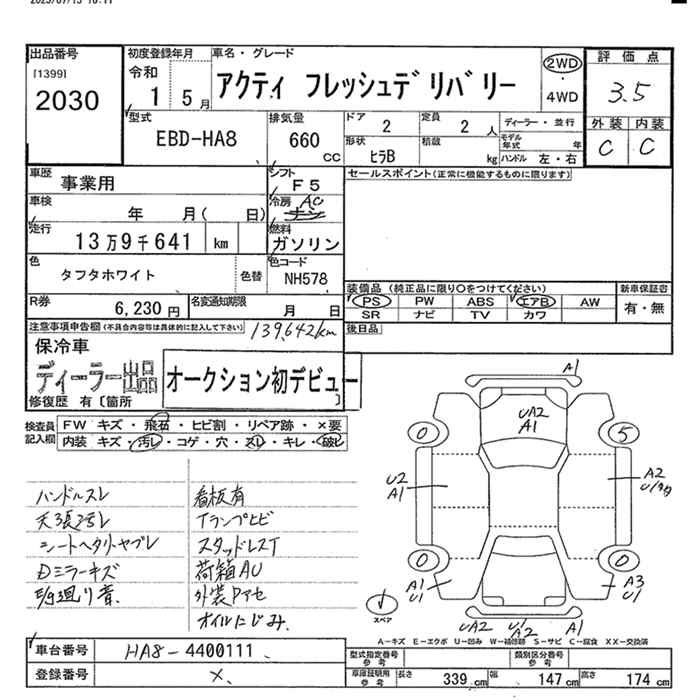 出品番号
[1399]
2030
初度登録年月
令和
1 5月
車名・グレード
アクティ フレッシュデリバリー
2WD
4WD
評価点
3.5
型式
EBD-HA8
排気量
660
CC
ドア 2
定員 2 人
ディーラー・並行
モデル年式 年
外装 内装
C C
形状 ヒラB
積載 kg
ハンドル 左・右
車歴 事業用
シフト F5
セールスポイント(正常に機能するものに限ります)
車検 年 月( 日)
冷房 AC
走行 13万9千641 km
燃料 ガソリン
色 タフタホワイト
色替
色コード NH578
装備品 (純正品に限り○をつけてください)
新車保証書
PS PW ABS エアB AW
SR ナビ TV カワ
有・無
R券 6,230円
名変通知期限 月 日
後日品
注意事項申告欄(不具合内容等は具体的に記入して下さい)
139,642km
保冷車
ディーラー出品
オークション初デビュー
修復歴 有〔箇所 〕
検査員記入欄
FW キズ・飛石・ヒビ割・リペア跡・×要
内装 キズ・汚レ・コゲ・穴・スレ・キレ・破レ
ハンドルスレ
天張汚レ
シートヘタリヤブレ
Dミラーキズ
看板有
Tランプヒビ
スタッドレスT
荷箱AU
オイルにじみ
A1
UA2
A1
0
5
U2
A1
A2
0
0
A1
U1
A3
U1
スペア
UA2
U1
A2
A1
A-キズ E-エクボ U-凹み W-補修跡 S-サビ C-腐食 XX-交換済
車台番号 HA8-4400111
登録番号 ×
型式指定番号 参考
類別区分番号 参考
車庫証明用 参考
長さ 339cm
幅 147cm
高さ 174cm